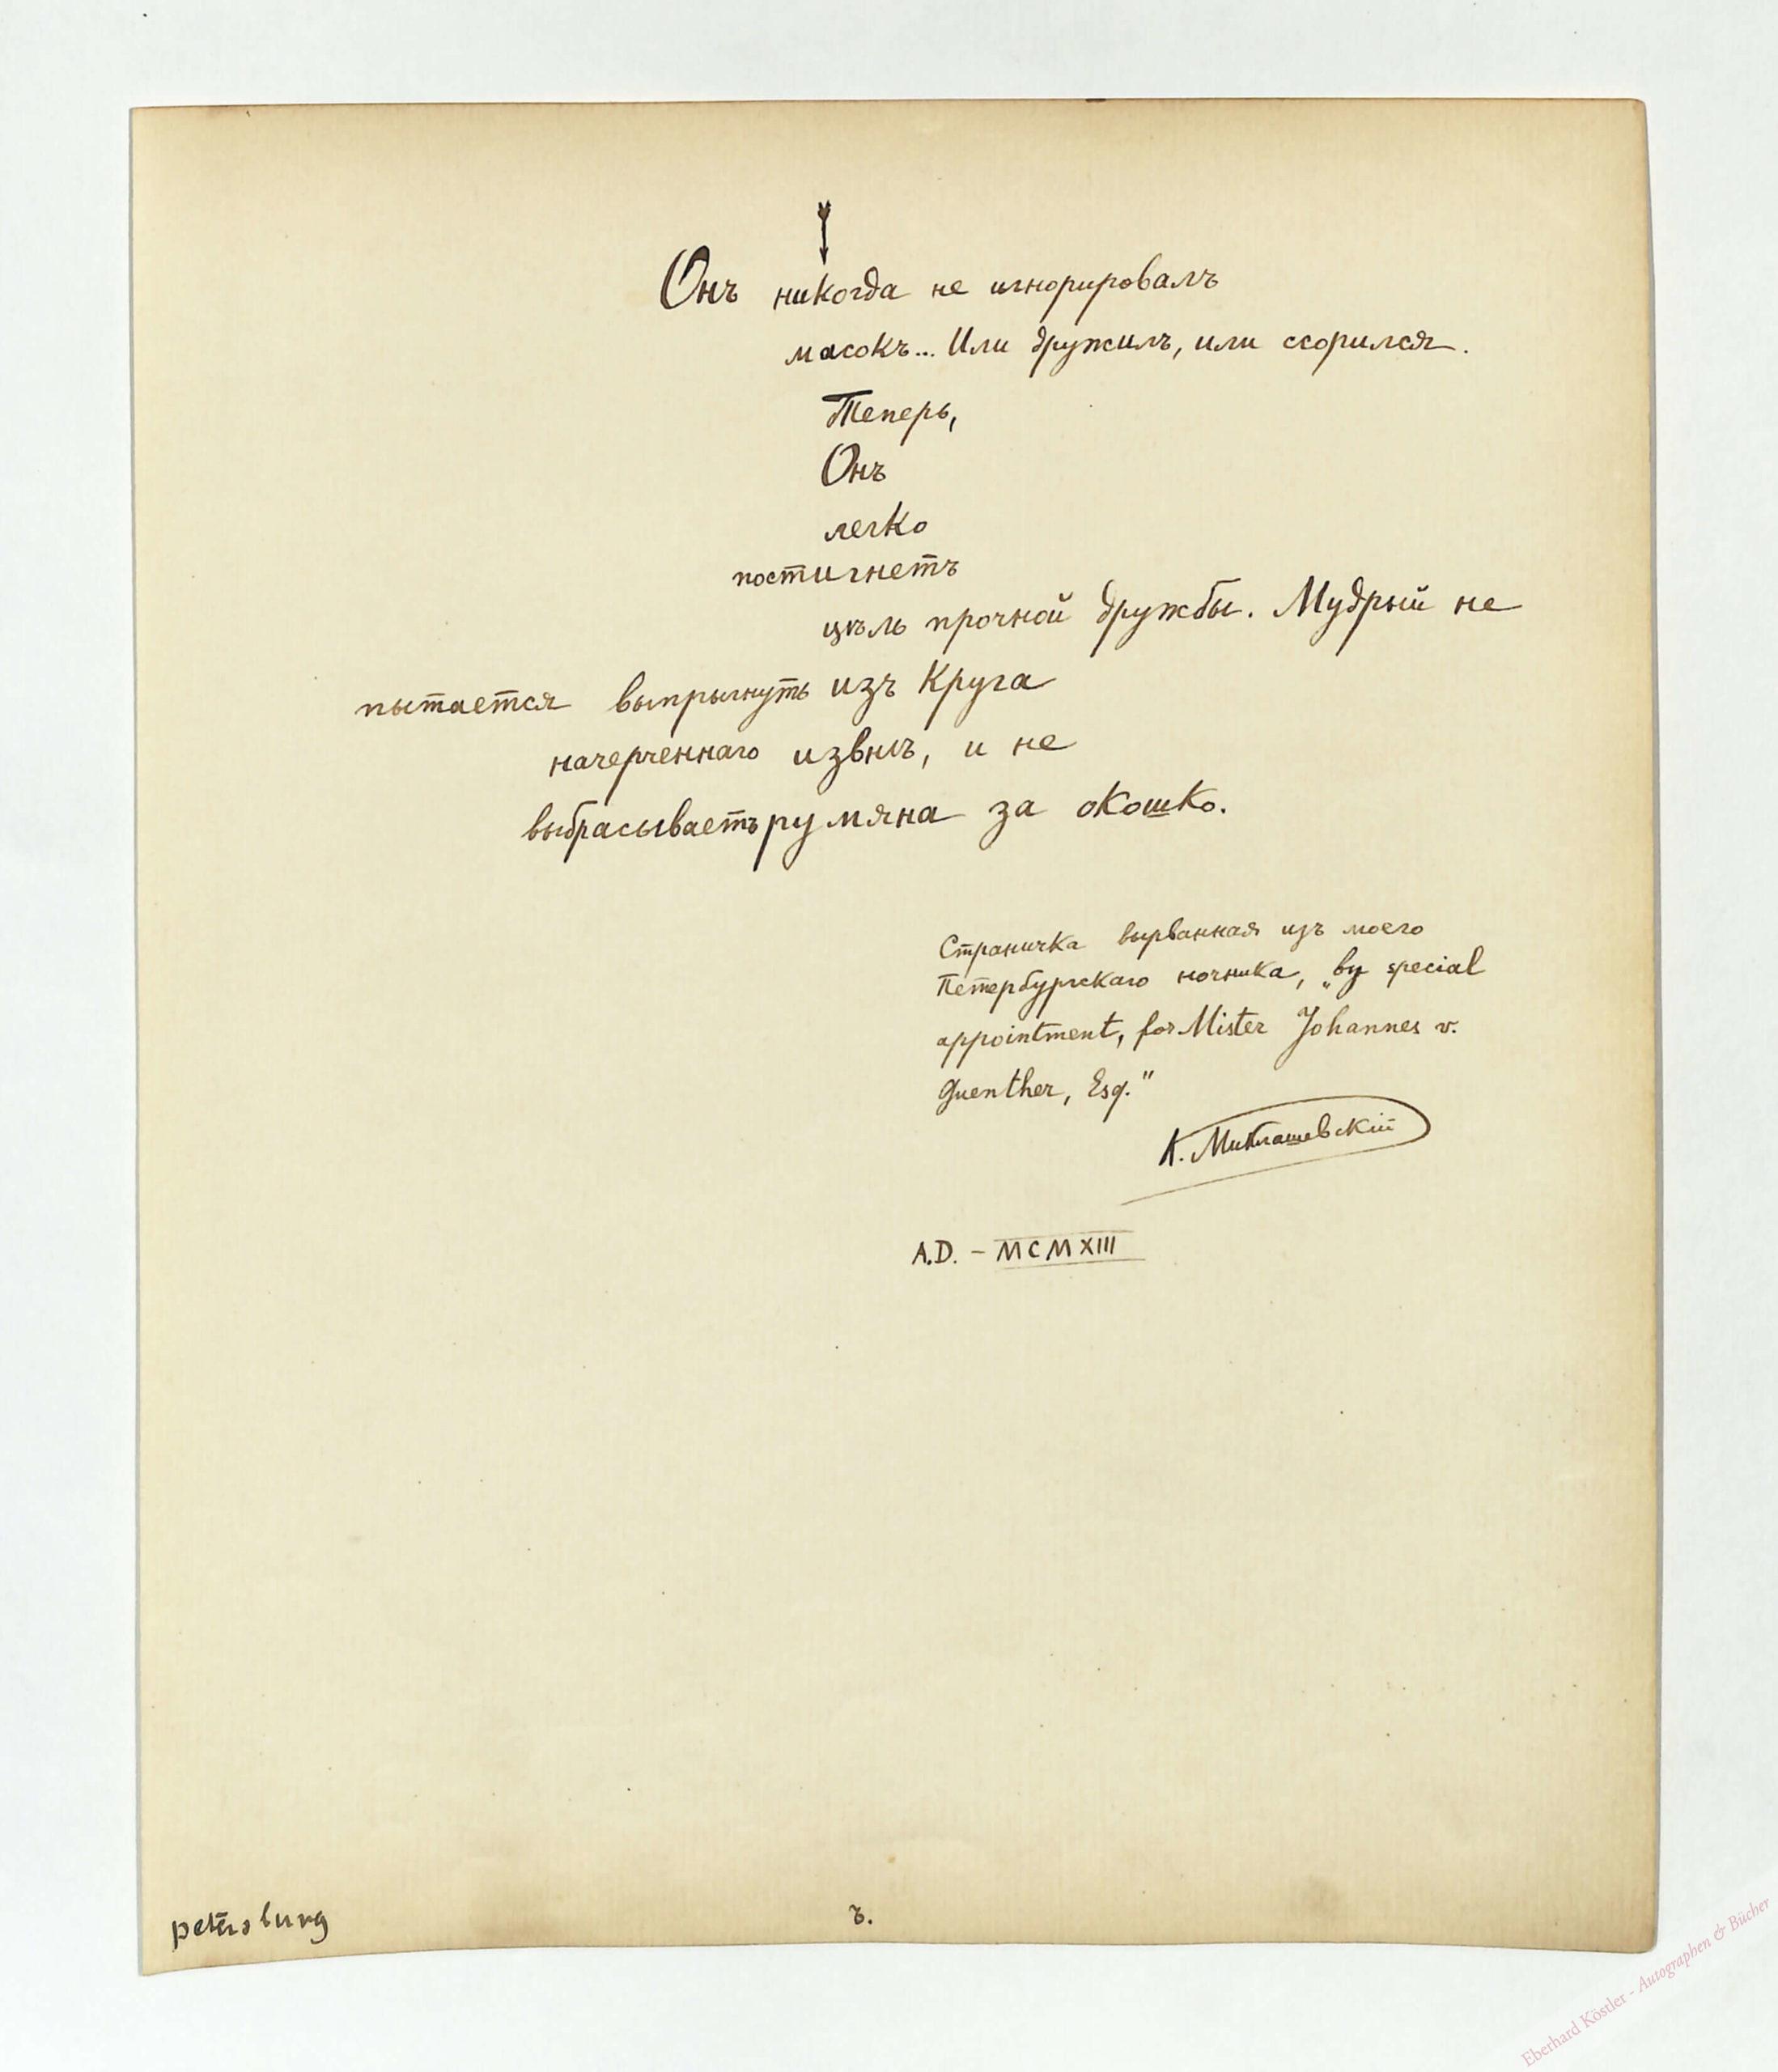 Онъ никогда не игнорировалъ
масокъ... Или дружилъ, или ссорился.
Теперь,
Онъ
легко
постигнетъ
цѣль прочной дружбы. Мудрый не
пытается выпрыгнуть изъ Круга
начерченнаго извнѣ, и не
выбрасываетъ румяна за окошко.
Страничка вырванная изъ моего
Петербургскаго ночника, „by special
appointment, for Mister Johannes v.
Guenther, Esq."
К. Миклашевскій
A.D. - MCMXIII
petersburg
ъ.
Eberhard Köstler - Autographen & Bücher